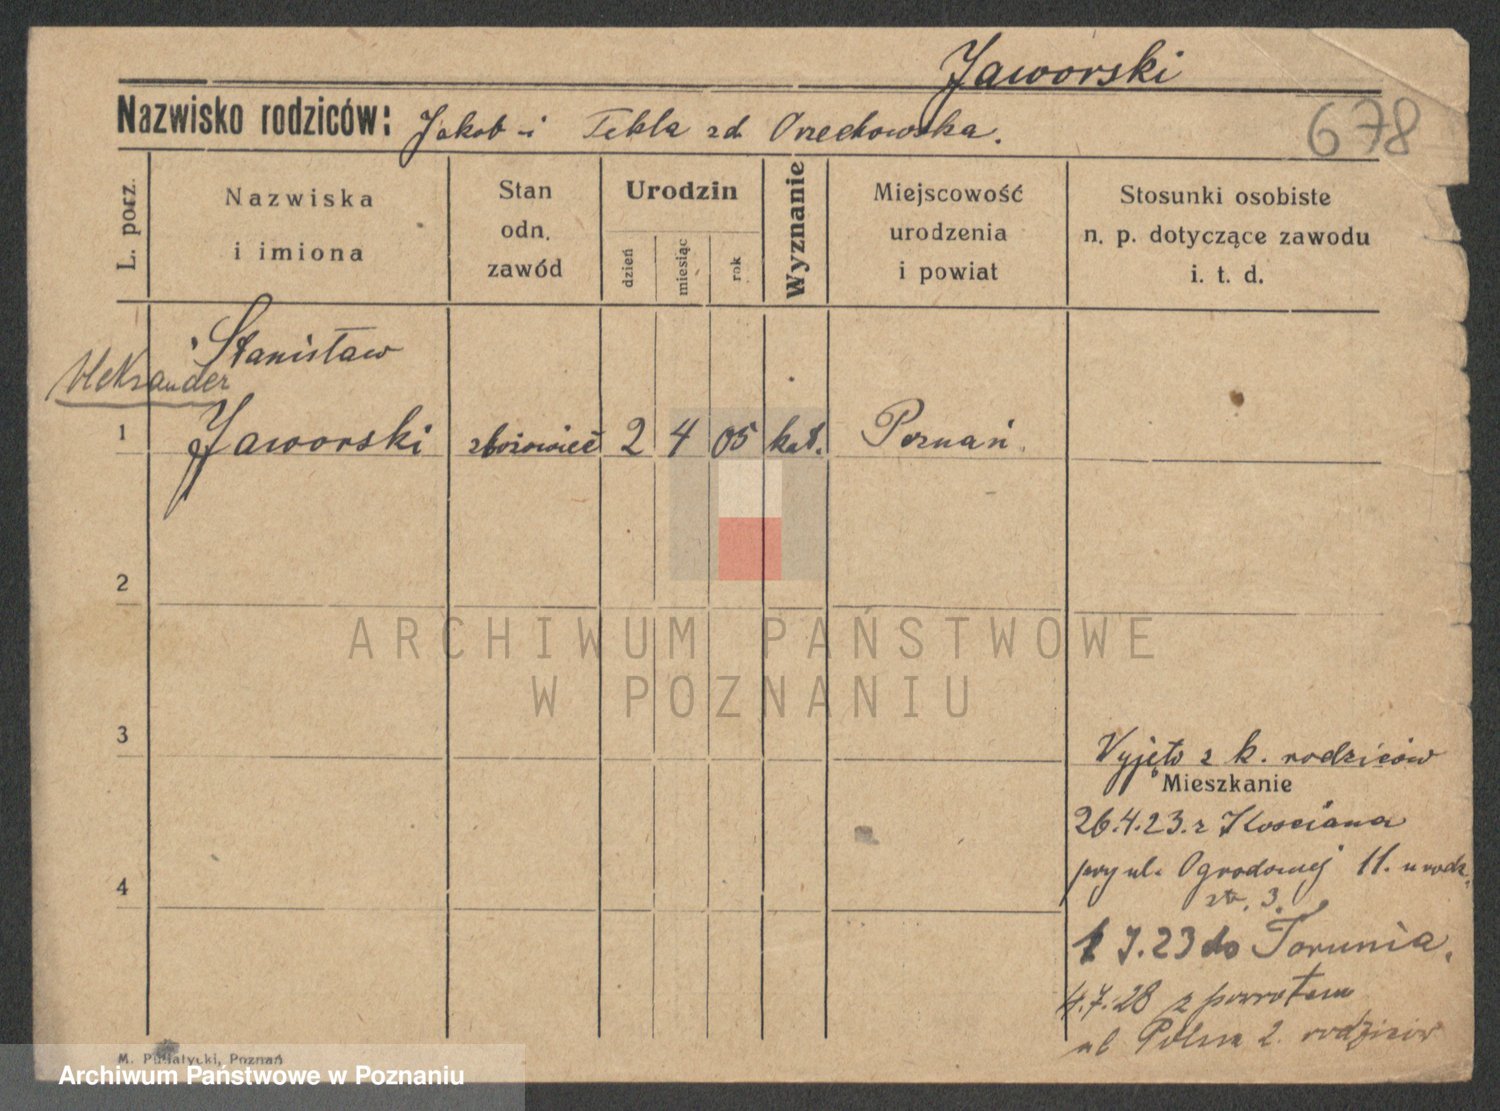 Jaworski
Nazwisko rodziców: Jakob i Tekla zd Orzechowska.
678
L. porz.
Nazwiska
i imiona
Stan
odn.
zawód
Urodzin
dzień
miesiąc
rok
Wyznanie
Miejscowość
urodzenia
i powiat
Stosunki osobiste
n. p. dotyczące zawodu
i. t. d.
Stanisław
Aleksander
1 Jaworski zbożowiec 2 4 05 kat. Poznań
2
ARCHIWUM PAŃSTWOWE
W POZNANIU
3
Wyjęto z k. rodziców
Mieszkanie
26.4.23. z Kosciana
przy ul. Ogrodowej 11. u rodz.
str. 3.
4
1 7.23 do Torunia.
4.7.28 z powrotem
ul 2. rodziców
M. Pusiatycki, Poznań
Archiwum Państwowe w Poznaniu